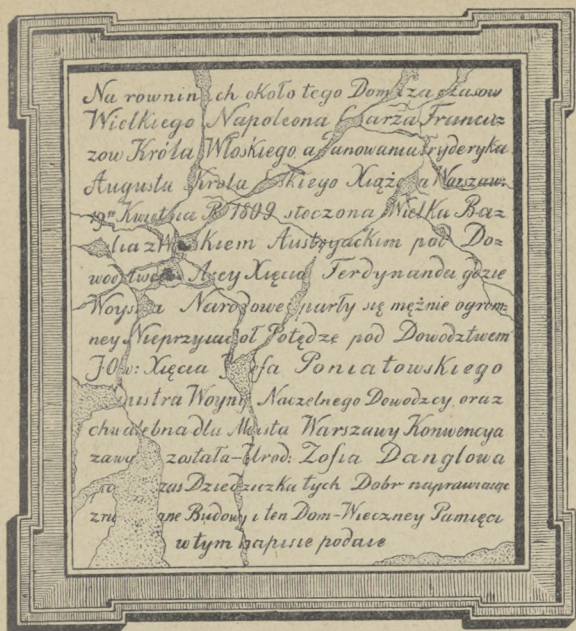 Na rownin ch około tego Dom za czasow
Wielkiego Napoleona arża Francuz=
zow Króla Włoskiego a anowania ryderyka
Augusta rola skiego Xiąż a Warszaw:
19go Kwietnia R 1809 stoczona Wielka Ba=
lia z W skiem Austryackim pod Do=
wodztwe Arcy Xięcia Ferdynanda gdzie
Woys a Narodowe parły się mężnie ogrom=
ney Nieprzyiacioł Potędze pod Dowodztwem
JOw: Xięcia J efa Poniatowskiego
nistra Woyny Naczelnego Dowodzcy oraz
chwalebna dla Miasta Warszawy Konwencya
zawa została=Urod: Zofia Danglowa
zas Dziedziczka tych Dobr naprawiaiąc
zni one Budowy i ten Dom=Wieczney Pamięci
w tym napisie podaie